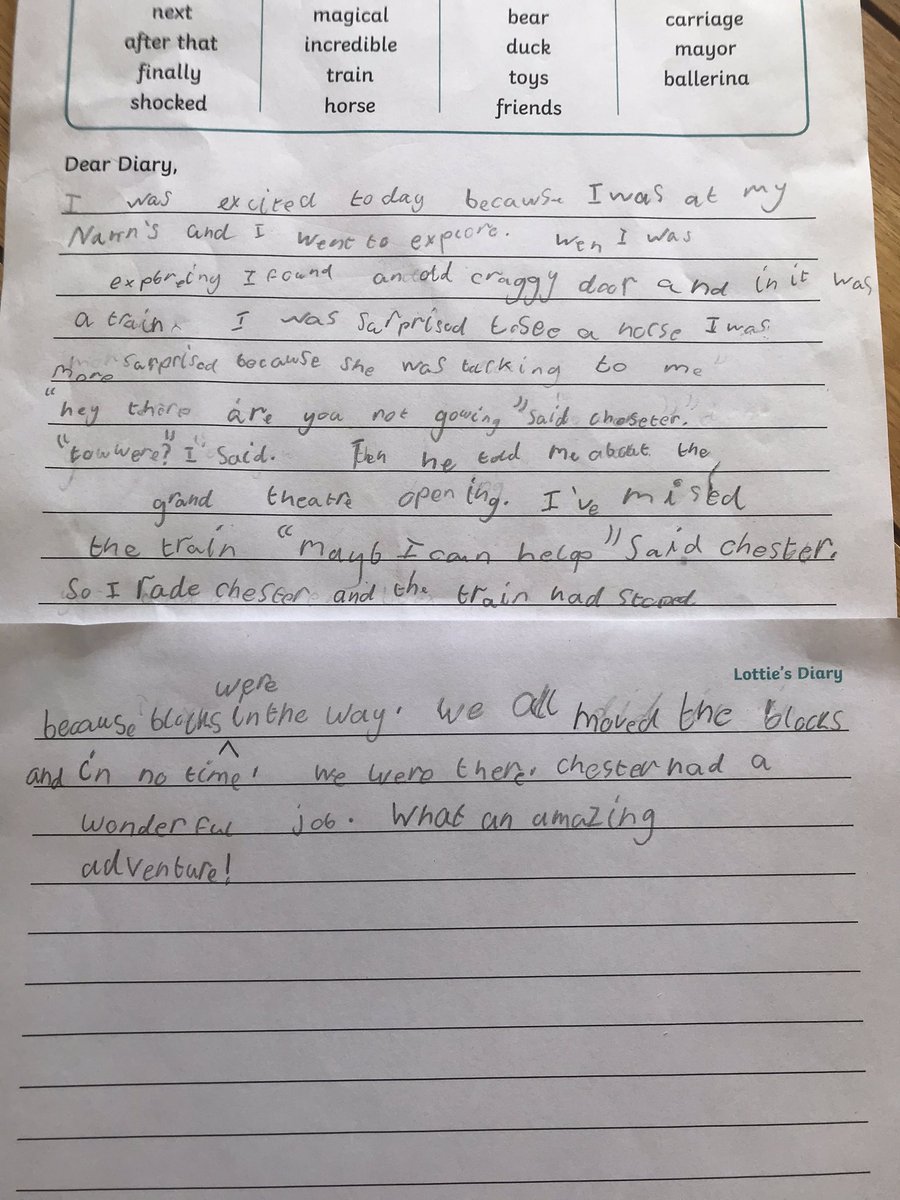 next magical bear carriage
after that incredible duck mayor
finally train toys ballerina
shocked horse friends
Dear Diary,
I was excited today because I was at my
Nann's and I went to explore. wen I was
exploreing I found an old craggy door and in it was
a train. I was sarprised to see a horse I was
more sarprised because she was talking to me
"hey there are you not gowing" said chester.
"tow were?" I said. Then he told me about the
grand theatre opening. I've missed
the train "mayb I can help" said chester.
So I rade chester and the train had stoped
Lottie's Diary
were
because blocks in the way. we all moved the blocks
and in no time. we were there. chester had a
wonderful job. What an amazing
adventure!